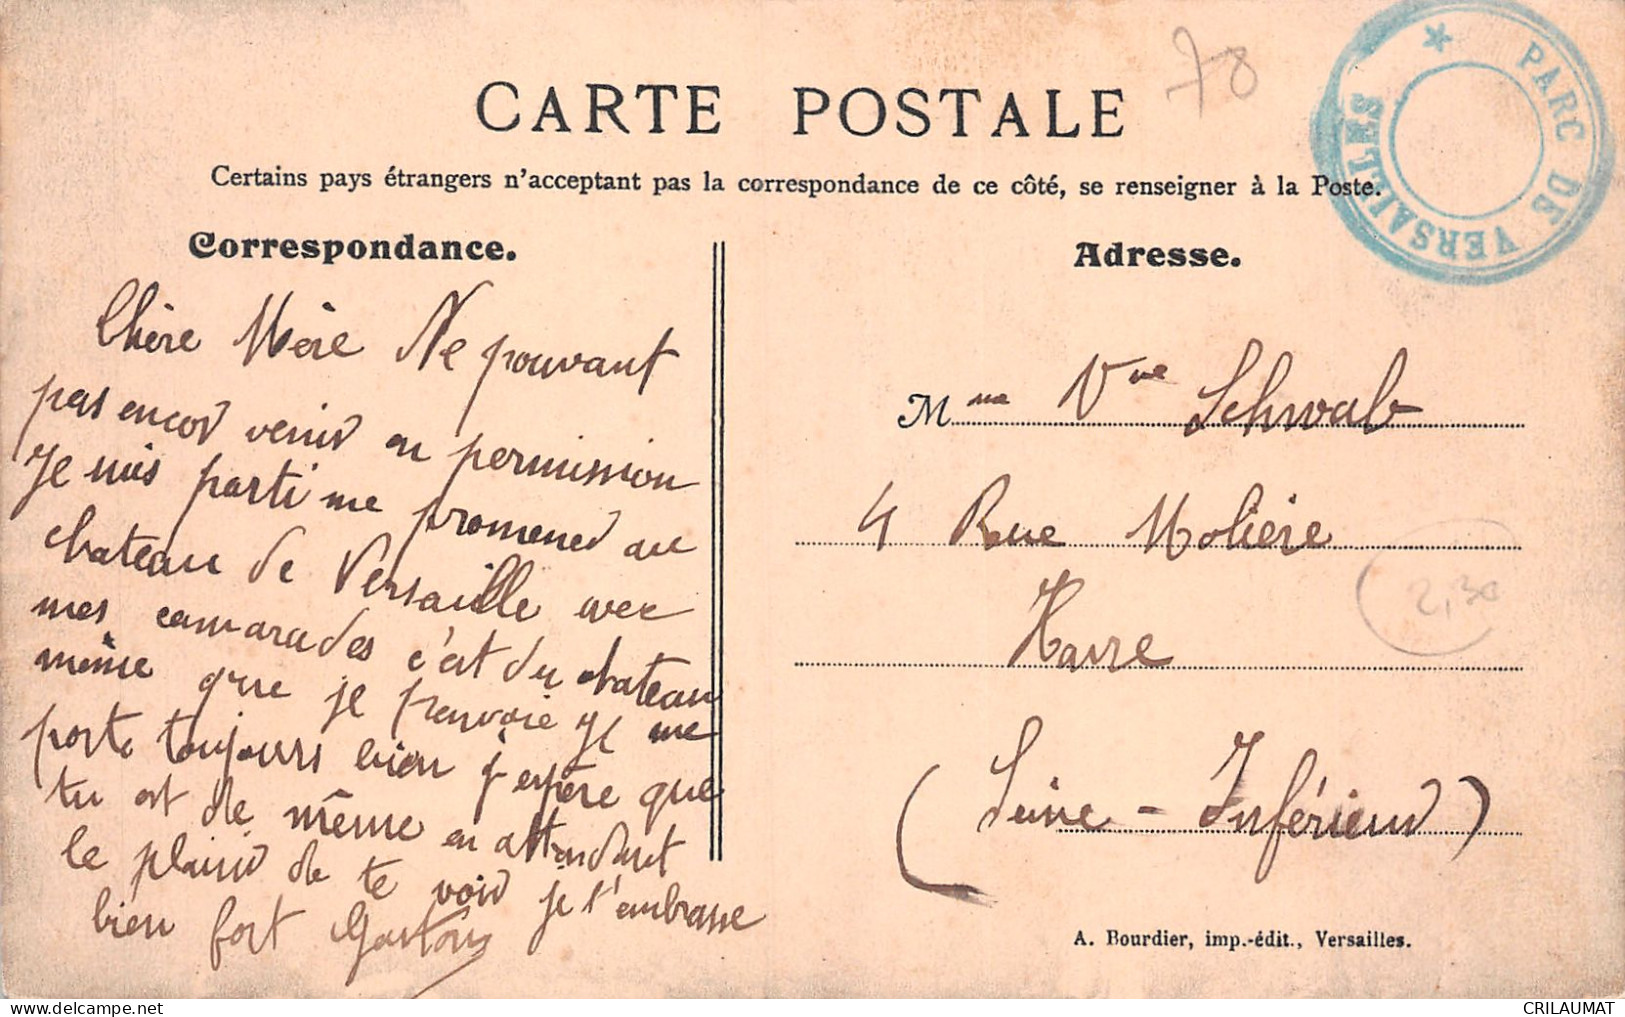 78
PARC DE VERSAILLES
CARTE POSTALE
Certains pays étrangers n'acceptant pas la correspondance de ce côté, se renseigner à la Poste.
Correspondance.
Chère Mère Ne pouvant
pas encor venir en permission
Je suis parti me promener au
chateau de Versaille avec
mes camarades c'est du chateau
même que je t'envoie Je me
porte toujours bien j'espère que
tu est de même en attendant
le plaisir de te voir je t'embrasse
bien fort Gaston
Adresse.
Mme Vve Schwab
4 Rue Molière
Havre
(Seine-Inférieur)
2,30
A. Bourdier, imp.-édit., Versailles.
CRILAUMAT